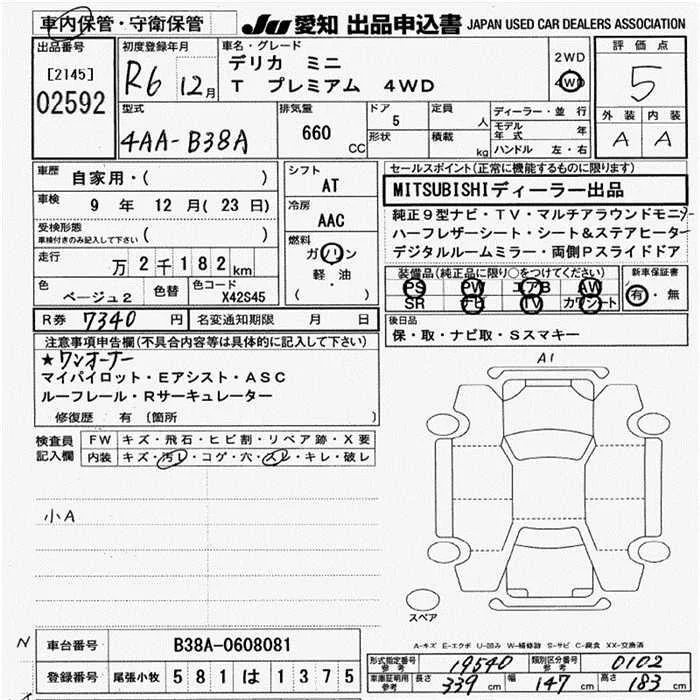 車内保管・守衛保管 JU 愛知 出品申込書 JAPAN USED CAR DEALERS ASSOCIATION
出品番号 初度登録年月 車名・グレード 評価点
[2145] R6 12月 デリカ ミニ 2WD
02592 T プレミアム 4WD 4WD 5
型式 排気量 ドア 定員 ディーラー・並行 外装 内装
4AA-B38A 660 CC 5 人 モデル年式 年 A A
形状 積載 kg ハンドル 左・右
車歴 自家用・( ) シフト AT セールスポイント(正常に機能するものに限ります)
車検 9年 12月(23日) 冷房 AAC MITSUBISHIディーラー出品
受検形態 車検付きのみ記入して下さい ( ) 純正9型ナビ・TV・マルチアラウンドモニター
燃料 ガソリン ハーフレザーシート・シート&ステアヒーター
走行 万2千182km 軽・油 デジタルルームミラー・両側Pスライドドア
( ) 装備品(純正品に限り○をつけてください) 新車保証書
色 ベージュ2 色替 色コード X42S45 PS PW エアB AW 有・無
SR ナビ TV カワシート
R券 7340円 名変通知期限 月 日 後日品
注意事項申告欄(不具合内容等は具体的に記入して下さい) 保・取・ナビ取・Sスマキー
★ワンオーナー
マイパイロット・Eアシスト・ASC
ルーフレール・Rサーキュレーター
修復歴 有 〔箇所 〕
A1
検査員記入欄 FW キズ・飛石・ヒビ割・リペア跡・X要
内装 キズ・汚レ・コゲ・穴・スレ・キレ・破レ
小A
スペア
A-キズ E-エクボ U-凹み W-補修跡 S-サビ C-腐食 XX-交換済
車台番号 B38A-0608081
登録番号 尾張小牧 581 は 1375
形式指定番号 参考 19540 類別区分番号 参考 0102
車庫証明用 参考 長さ 339cm 幅 147cm 高さ 183cm